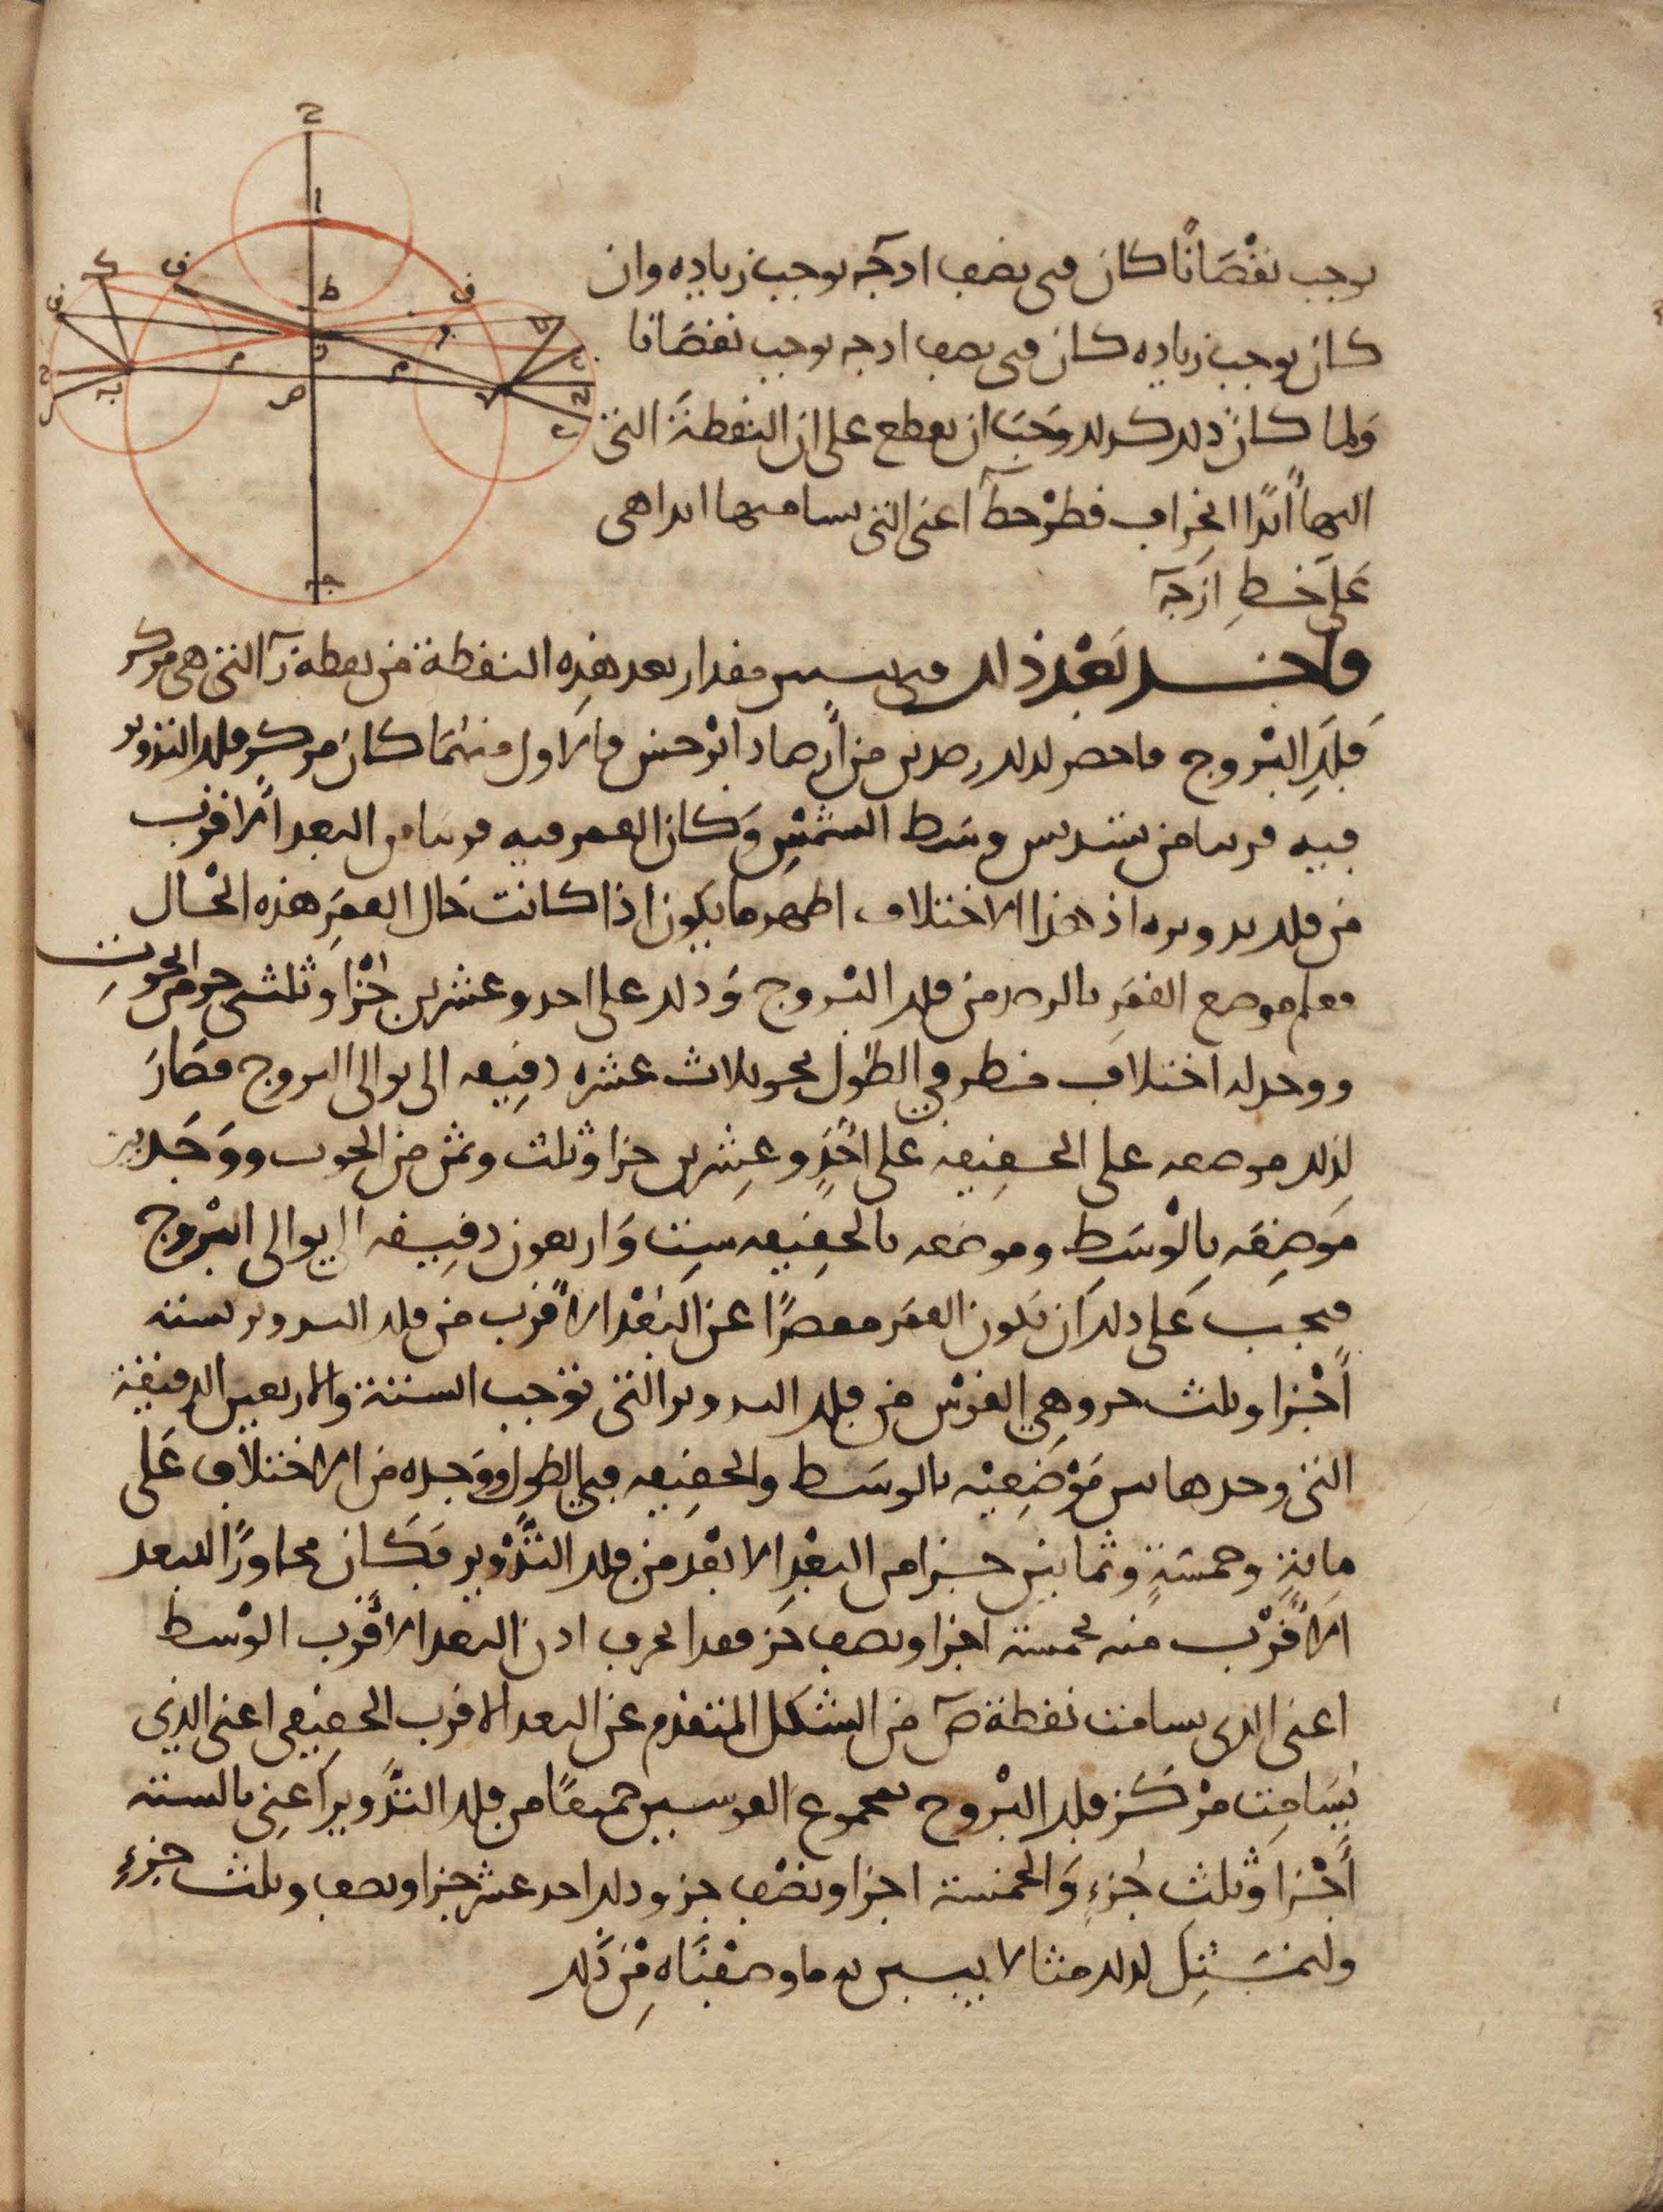 يوجب نقْصَانًا كان في نصف ادجَـ يوجب زياده وان
كان يوجب زياده كان في نصف ادجـ يوجب نقصَانا
وَلما كان ذلك كذلك وَجَبَ ان يقطع على ان النقطةَ التى
اليها أبدًا انحِراف قطْر حطَ اعنى التى يسامتها ابدا هى
عَلى خط ازجَـ
واخـــد بَعْد ذلك في تبيين مقدار بعد هذِه النقطة من نقطة زَ التى هى مركز
فَلَكِ البْروج فاحضر لذلك رصدين من أرصاد ابرْخس فالاول منهُمَا كان مركز فلك التدوير
فيه قريبا من تسديس وسَط الشمْسِ وَكان القمر فيه قريبا من البعد الأقرب
من فلك تدويره اذ هذا الاختلاف اظهر ما يكون اذا كانت حَال القمَرِ هذه الحْـال
فعلم موضع القمَرِ بالرصد من فلك البْروج وَذلك على احد وعشرين جُزْا وثلثى جزْ من الحُوتِ
ووجد له اختلاف منظر في الطُول نحو ثلاث عشره دقِيقه الى توالى البروج فصَارَ
لِذلك موضعه على الحـقِيقه على اَحَدٍ وعِشرين جزا وثلث وثمن من الحوت ووَجَد بين
مَوضِعَه بِالْوسَطِ وموضعه بالحقِيقه سِت وَاربعون دقِيقه الى توالى البْروج
فيجب عَلى ذلكَ ان يَكون القمَر مقصرًا عن البُعْد الأقرب من فلك التدوير بستة
أَجْزا وثلث جز وهى القوْس من فلك التدوير التى توْجب الستة والاربعين الدقيقة
التى وجدها بين مَوْضِعيْه بالوسَط والحقيقه في الطول ووَجده من الاختلاف عَلى
مايةٍ وخمسَةٍ وثمانين جــزا من البعْدِ الابعْد من فلك التَّدْوير فكَان مجاوزًا للبعد
الأقْرَب منه بخمسة اجزا ونصف جَز فقد انحرف اذن البعد الأقرب الوْسط
اعنى الذى يسامت نقطة صَ من الشكل المتقدم عن البعد الاقرب الحقيقى اعنى الذي
يُسَامِت مَرْكَز فلك البْروج بمجموع القوسين جميعًا من فلك التدْوِير اَعنِى بالستة
أَجْــزا وَثلث جُزءٍ وَالخمسة اجزا ونصْف جز وذلك احد عشر جزا ونصف وثلث جزءٍ
ولنمَثِل لذلك مثالا يبين به ما وصفْنَاه مِن ذَلك